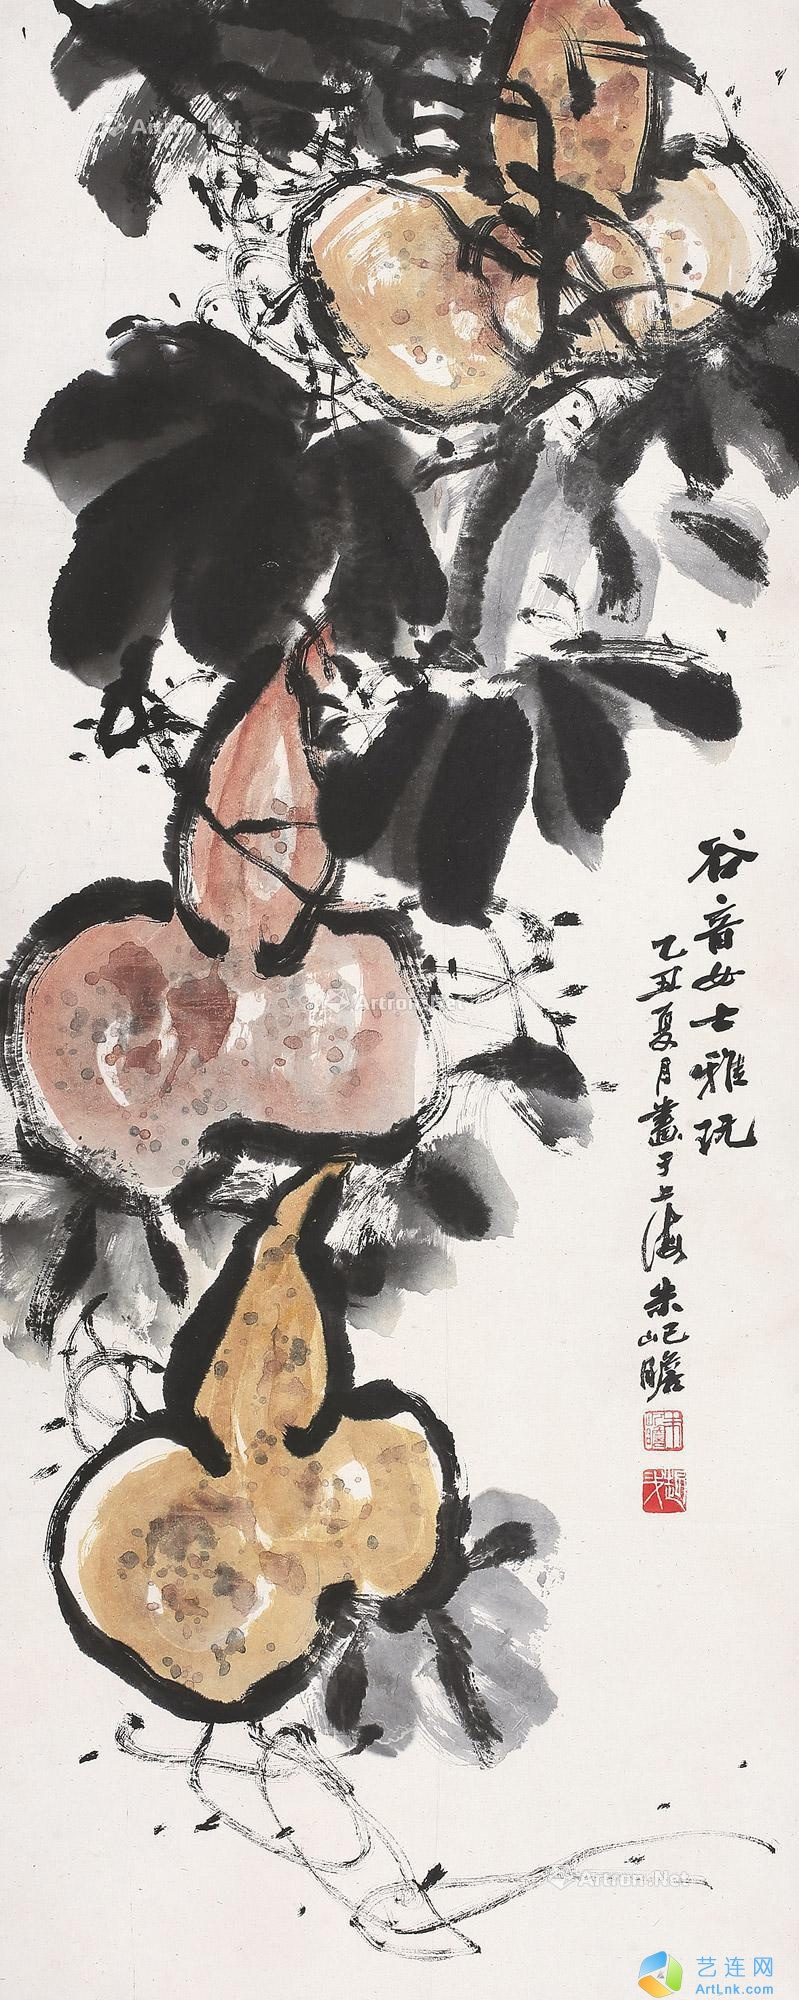 谷音女士雅玩
乙丑夏月畫于上海朱屺瞻
朱屺瞻
Artron.Net
Artron.Net
Artron.Net
艺连网
ArtLnk.com